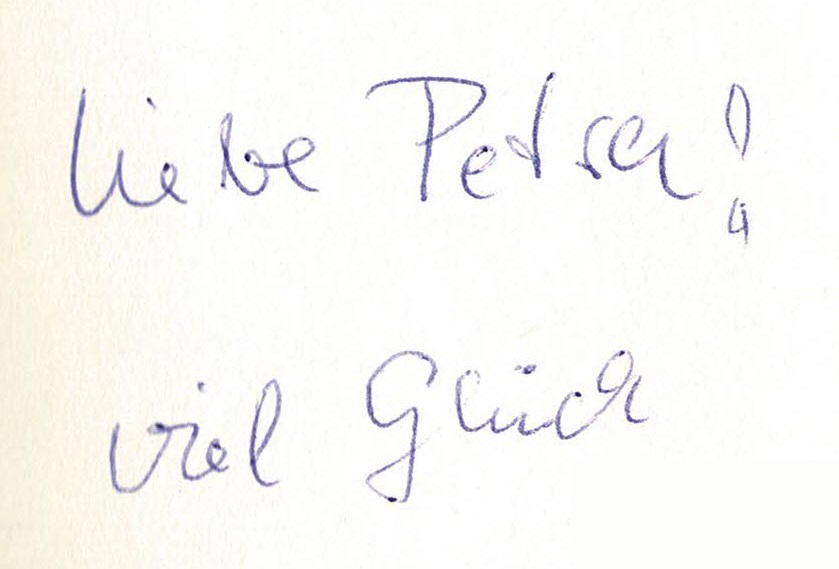 Liebe Petra!
viel Glück